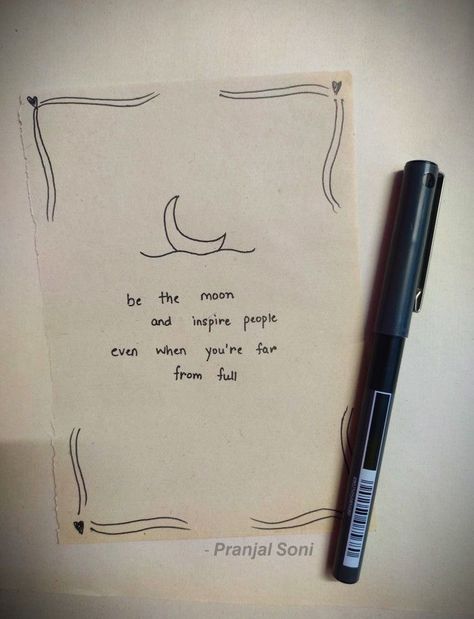 be the moon
and inspire people
even when you're far
from full
- Pranjal Soni